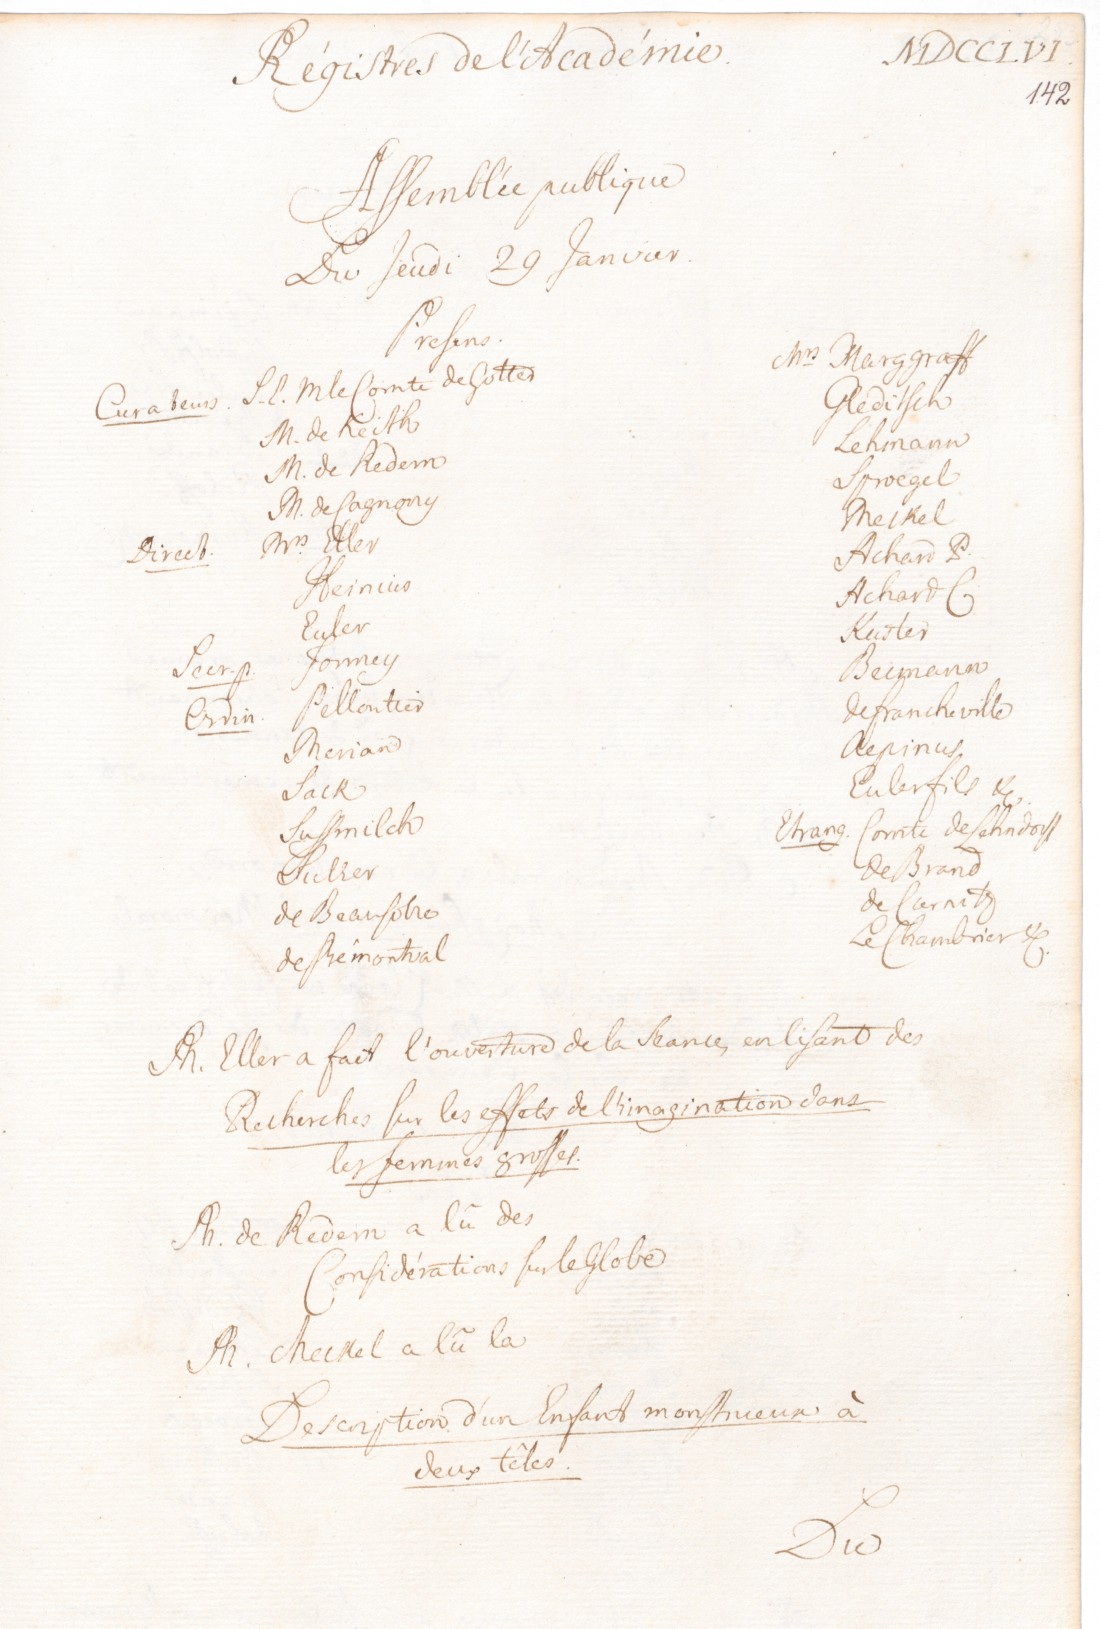 Régistres de l'Académie. MDCCLVI.
142
Assemblée publique
Du Jeudi 29 Janvier.
Presens.
Curateurs. S. E. M le Comte de Gotter
M. de Keith
M. de Redern
M. de Cagnony
Direct. Mrs Eller
Heinius
Euler
Secr. p. Formey
Ordin. Pelloutier
Merian
Sack
Sussmilch
Sulzer
de Beausobre
de Prémontval
Mrs Marggraff
Gleditsch
Lehmann
Sproegel
Meckel
Achard P.
Achard C.
Kuster
Becmann
de Francheville
Aepinus
Euler fils &c.
Etrang. Comte de Lehndorff
de Brand
de Carnitz
Le Chambrier &c.
M. Eller a fait l'ouverture de la Seance, en lisant des
Recherches sur les effets de l'imagination dans
les femmes grosses.
M. de Redern a lû des
Considérations sur le Globe
M. Meckel a lû la
Description d'un Enfant monstrueux à
deux têtes.
Du